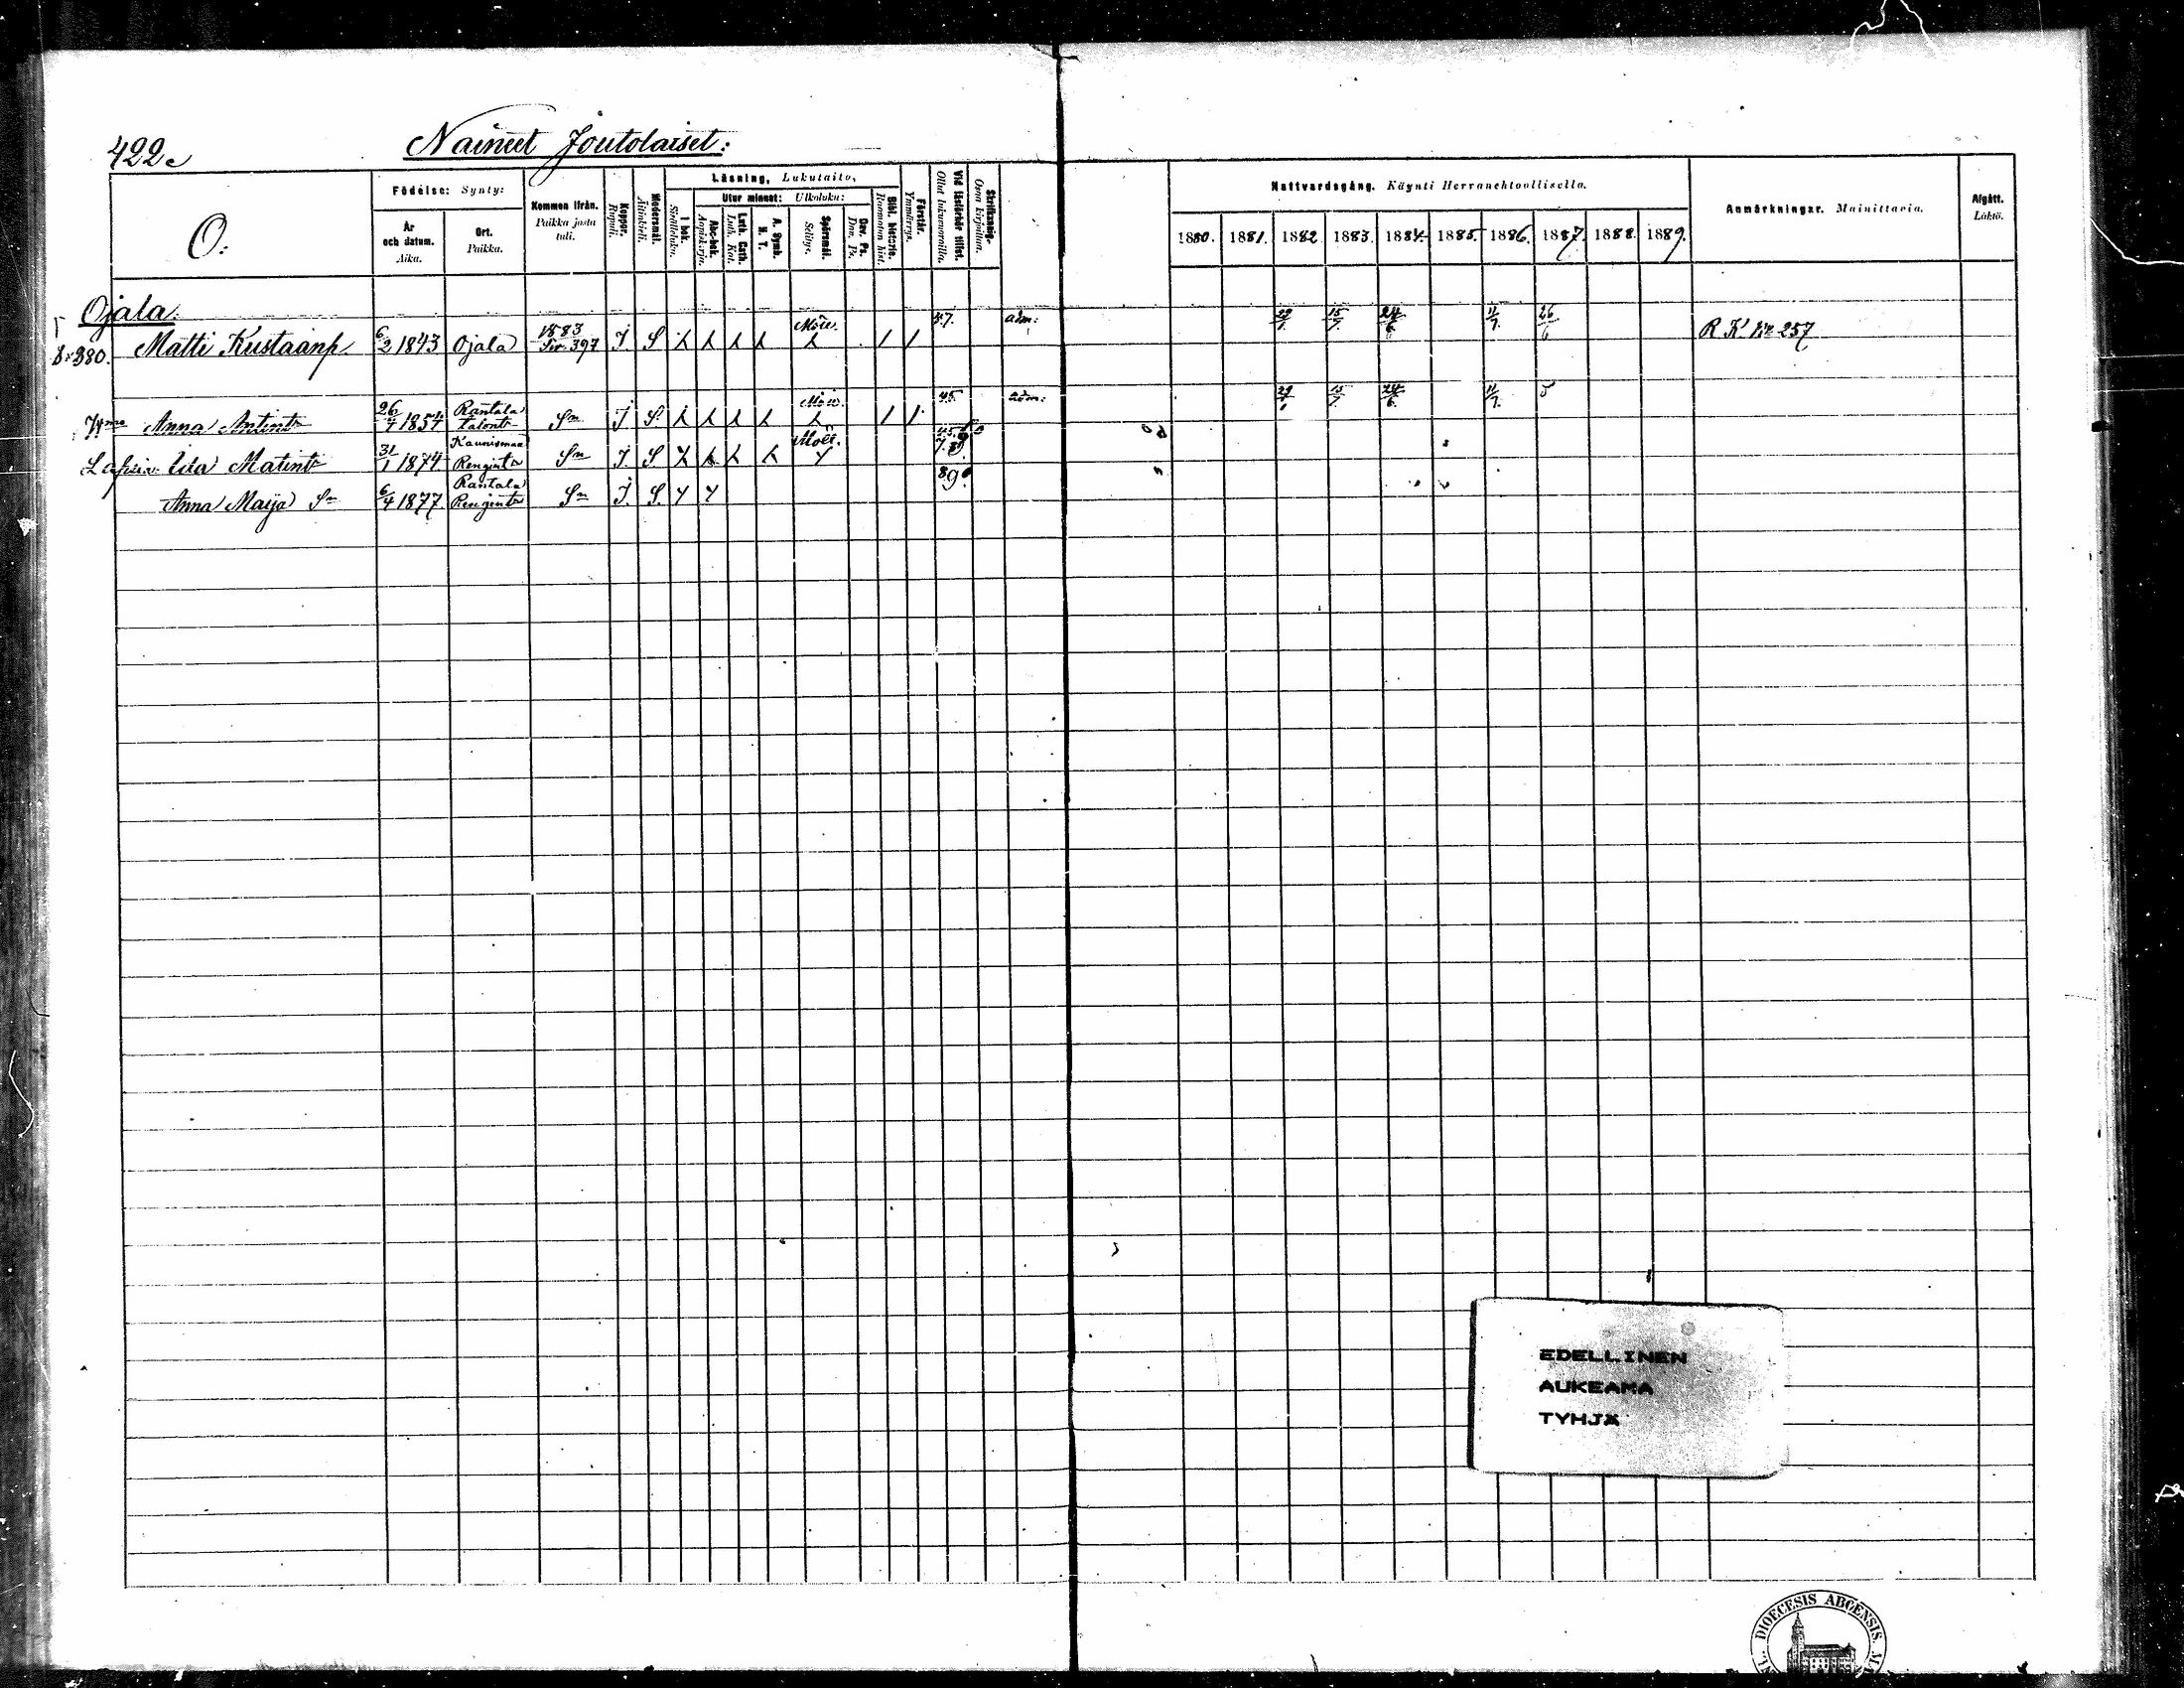 422.
Naineet Joutolaiset:
O:
Födelse: Synty:
År och datum. Aika.
Ort. Paikka.
Kommen ifrån. Paikka josta tuli.
Koppor. Rupuli.
Modersmål. Äitinkieli.
Läsning, Lukutaito,
I bok. Sisälluku.
Utur minnet: Ulkoluku:
Abc-bok. Aapiskirja.
Luth. Cath. Luth. Kat.
A. Symb. H. T.
Spörsmål. Selitys.
Dav. Ps. Dav. Ps.
Bibl. historie. Raamatun hist.
Förstår. Ymmärrys.
Vid läsförhör tillst. Ollut lukuvuorolla.
Skrifkunnig. Osaa kirjoittaa.
Nattvardsgång. Käynti Herranehtoollisella.
1880. 1881. 1882 1883. 1884. 1885. 1886. 1887. 1888. 1889.
Anmärkningar. Mainittavia.
Afgått. Lähtö.
Ojala.
380. Matti Kustaanp. 6/2 1843 Ojala 1883 Siv. 397 J S 87. adm: 29/1. 15/7. 24/6. 11/7. 26/6 R. K. 257
Anna Antint 26/4 1854 Rantala talont Sn J S. 85. adm: 29/1 15/7. 24/6. 11/7. 5
Lapsia: Ida Matint 31/1 1874 Kaunismaa Rengint Sn J. S
Anna Maija Sn 6/4 1877. Rantala Rengint Sn J. S. 89.
EDELLINEN
AUKEAMA
TYHJÄ
DIOECESIS ABOENSIS.